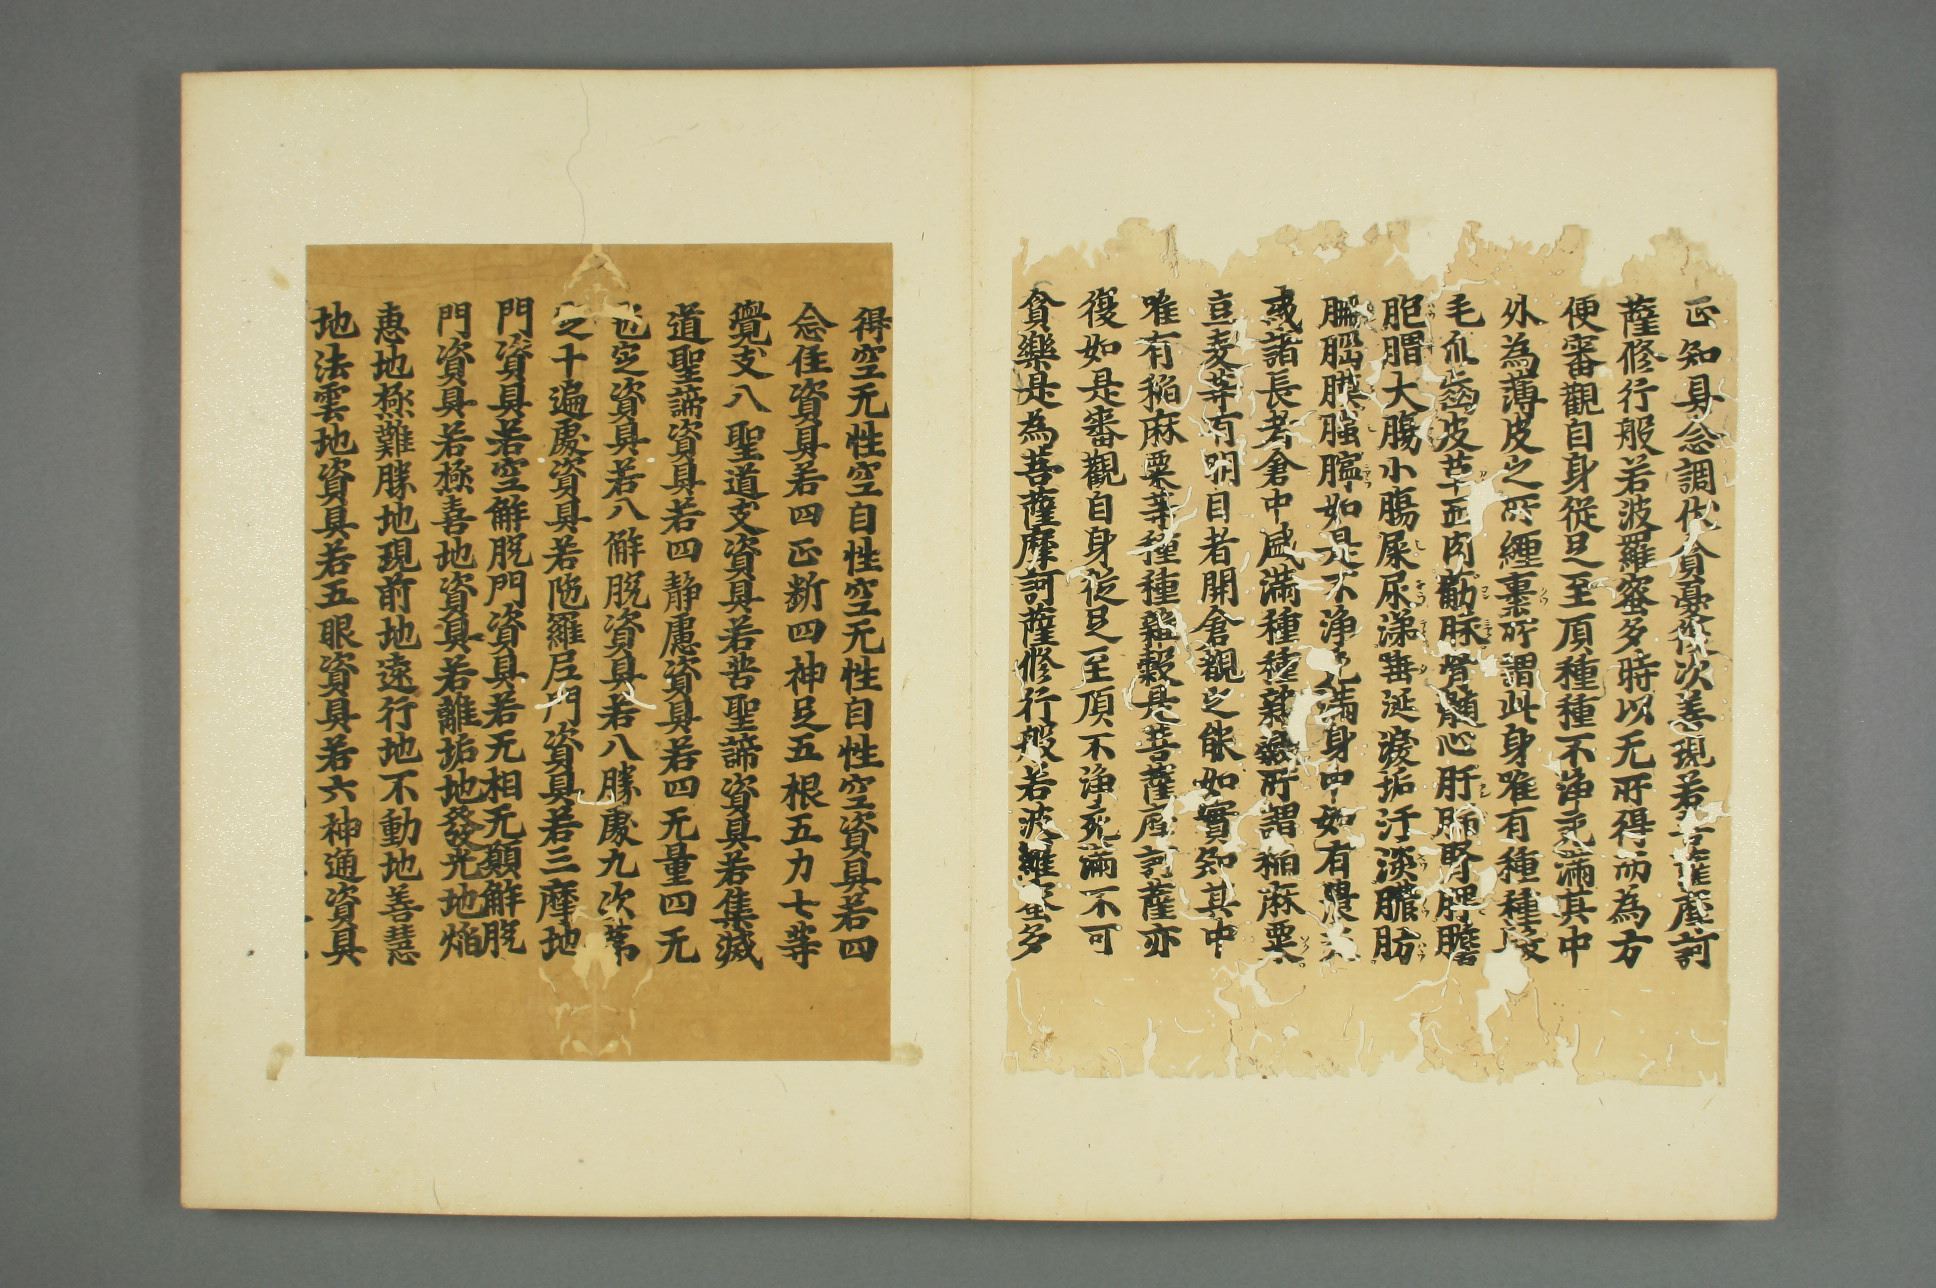 正知具念調伏貪憂復次善現若菩薩摩訶
薩修行般若波羅蜜多時以无所得而為方
便審觀自身從足至頂種種不浄充滿其中
外為薄皮之所纏裹所謂此身唯有種種髮
毛爪齒皮革血肉觔脉骨髓心肝肺腎脾膽
胞胃大腸小腸屎尿涕唾涎淚垢汙淡膿肪
腦膜如是不浄充滿身中如有農夫
或諸長者倉中盛滿種種雜穀所謂稲麻粟
豆麦等有明目者開倉覩之能如實知其中
唯有稲麻粟等種種雜穀具菩薩摩訶薩亦
復如是審觀自身從足至頂不浄充滿不可
貪樂是為菩薩摩訶薩修行般若波羅蜜多
得空无性空自性空无性自性空資具若四
念住資具若四正断四神足五根五力七等
覺支八聖道支資具若苦聖諦資具若集滅
道聖諦資具若四静慮資具若四无量四无
色定資具若八解脱資具若八勝處九次第
定十遍處資具若陁羅尼門資具若三摩地
門資具若空解脱門資具若无相无願解脱
門資具若極喜地資具若離垢地發光地焔
恵地極難勝地現前地遠行地不動地善慧
地法雲地資具若五眼資具若六神通資具